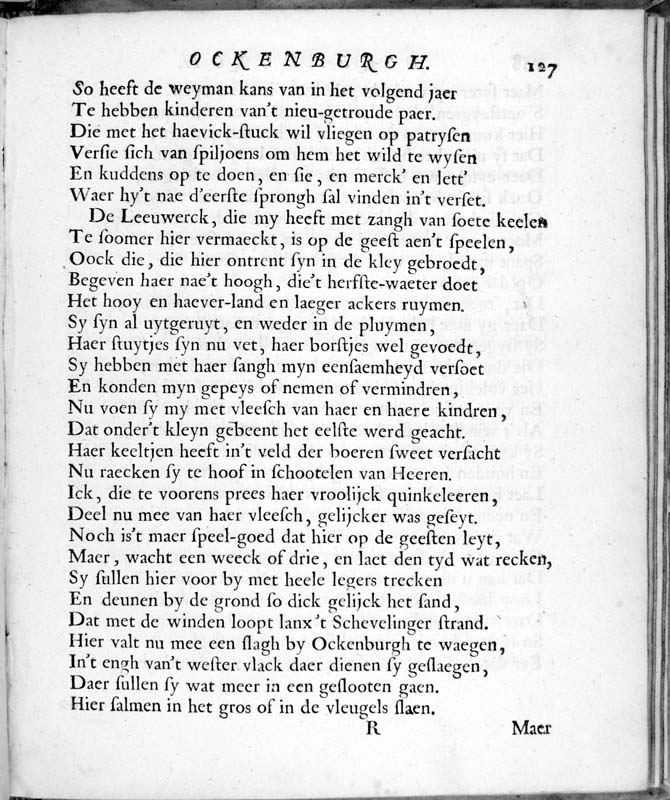 OCKENBURGH. 127
So heeft de weyman kans van in het volgend jaer
Te hebben kinderen van't nieu-getroude paer.
Die met het haevick-ſtuck wil vliegen op patryſen
Verſie ſich van ſpiljoens om hem het wild te wyſen
En kuddens op te doen, en ſie, en merck' en lett'
Waer hy't nae d'eerſte ſprongh ſal vinden in't verſet.
De Leeuwerck, die my heeft met zangh van ſoete keelen
Te ſoomer hier vermaeckt, is op de geeſt aen't ſpeelen,
Oock die, die hier ontrent ſyn in de kley gebroedt,
Begeven haer nae't hoogh, die't herfſte-waeter doet
Het hooy en haever-land en laeger ackers ruymen.
Sy ſyn al uytgeruyt, en weder in de pluymen,
Haer ſtuytjes ſyn nu vet, haer borſtjes wel gevoedt,
Sy hebben met haer ſangh myn eenſaemheyd verſoet
En konden myn gepeys of nemen of vermindren,
Nu voen ſy my met vleeſch van haer en haere kindren,
Dat onder't kleyn gebeent het eelſte werd geacht.
Haer keeltjen heeft in't veld der boeren ſweet verſacht
Nu raecken ſy te hoof in ſchootelen van Heeren.
Ick, die te voorens prees haer vroolijck quinkeleeren,
Deel nu mee van haer vleeſch, gelijcker was geſeyt.
Noch is't maer ſpeel-goed dat hier op de geeſten leyt,
Maer, wacht een weeck of drie, en laet den tyd wat recken,
Sy ſullen hier voor by met heele legers trecken
En deunen by de grond ſo dick gelijck het ſand,
Dat met de winden loopt lanx't Schevelinger ſtrand.
Hier valt nu mee een ſlagh by Ockenburgh te waegen,
In't engh van't weſter vlack daer dienen ſy geſlaegen,
Daer ſullen ſy wat meer in een geſlooten gaen.
Hier ſalmen in het gros of in de vleugels ſlaen.
R Maer